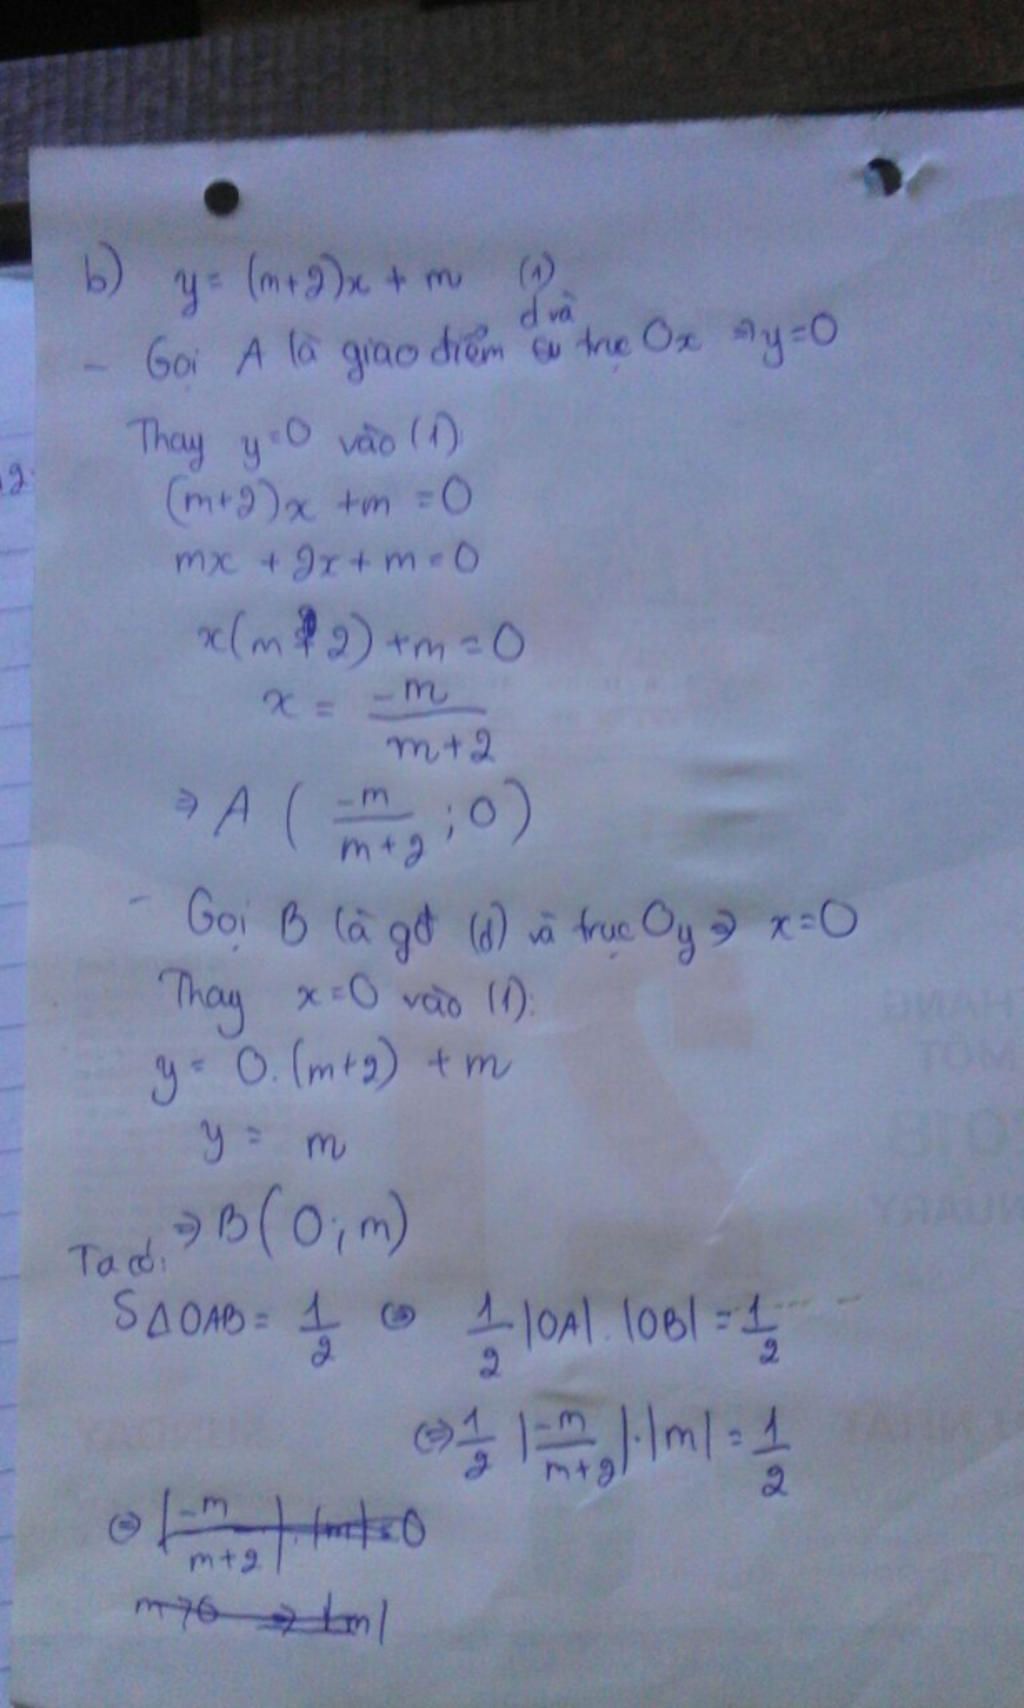 b) y = (m+2)x + m (1)
d và
- Gọi A là giao điểm trục Ox ⇒ y=0
Thay y=0 vào (1):
(m+2)x + m = 0
mx + 2x + m = 0
x(m+2) + m = 0
x = -m/(m+2)
⇒ A ( -m/(m+2) ; 0 )
- Gọi B là gđ (d) và trục Oy ⇒ x=0
Thay x=0 vào (1):
y = 0.(m+2) + m
y = m
⇒ B(0; m)
Ta có:
S△OAB = 1/2 ⇔ 1/2 |OA|.|OB| = 1/2
⇔ 1/2 |-m/(m+2)|.|m| = 1/2
⇔ |-m/(m+2)|.|m| = 0
⇒ |m|
THANG
MOT
2018
JANUARY
SUNDAY
NHAT